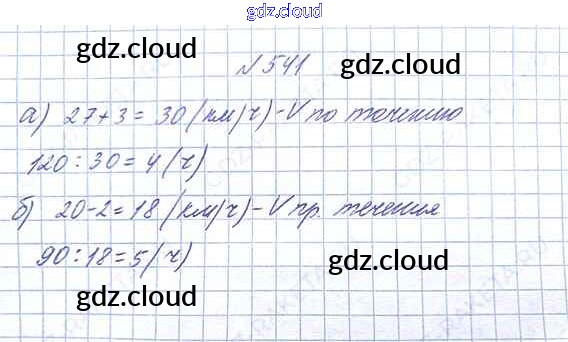 gdz.cloud
gdz.cloud gdz.cloud
№ 541
а) 27+3=30 (км/ч) - V по течению
120:30=4 (ч)
gdz.cloud gdz.cloud
б) 20-2=18 (км/ч) - V пр. течения
90:18=5 (ч)
gdz.cloud
gdz.cloud